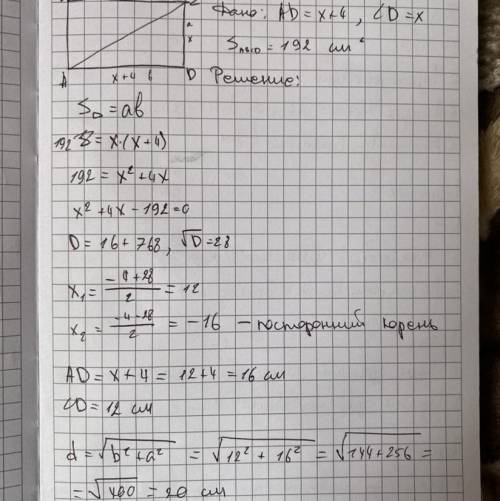 Дано: AD = x+4, CD = x
a
x
S = 192 см²
A x+4 b D Решение:
S▭ = ab
192 = x·(x+4)
192 = x² + 4x
x² + 4x - 192 = 0
D = 16 + 768, √D = 28
x₁ = (-4+28)/2 = 12
x₂ = (-4-28)/2 = -16 - посторонний корень
AD = x+4 = 12+4 = 16 см
CD = 12 см
d = √(b²+a²) = √(12² + 16²) = √(144+256) =
= √400 = 20 см